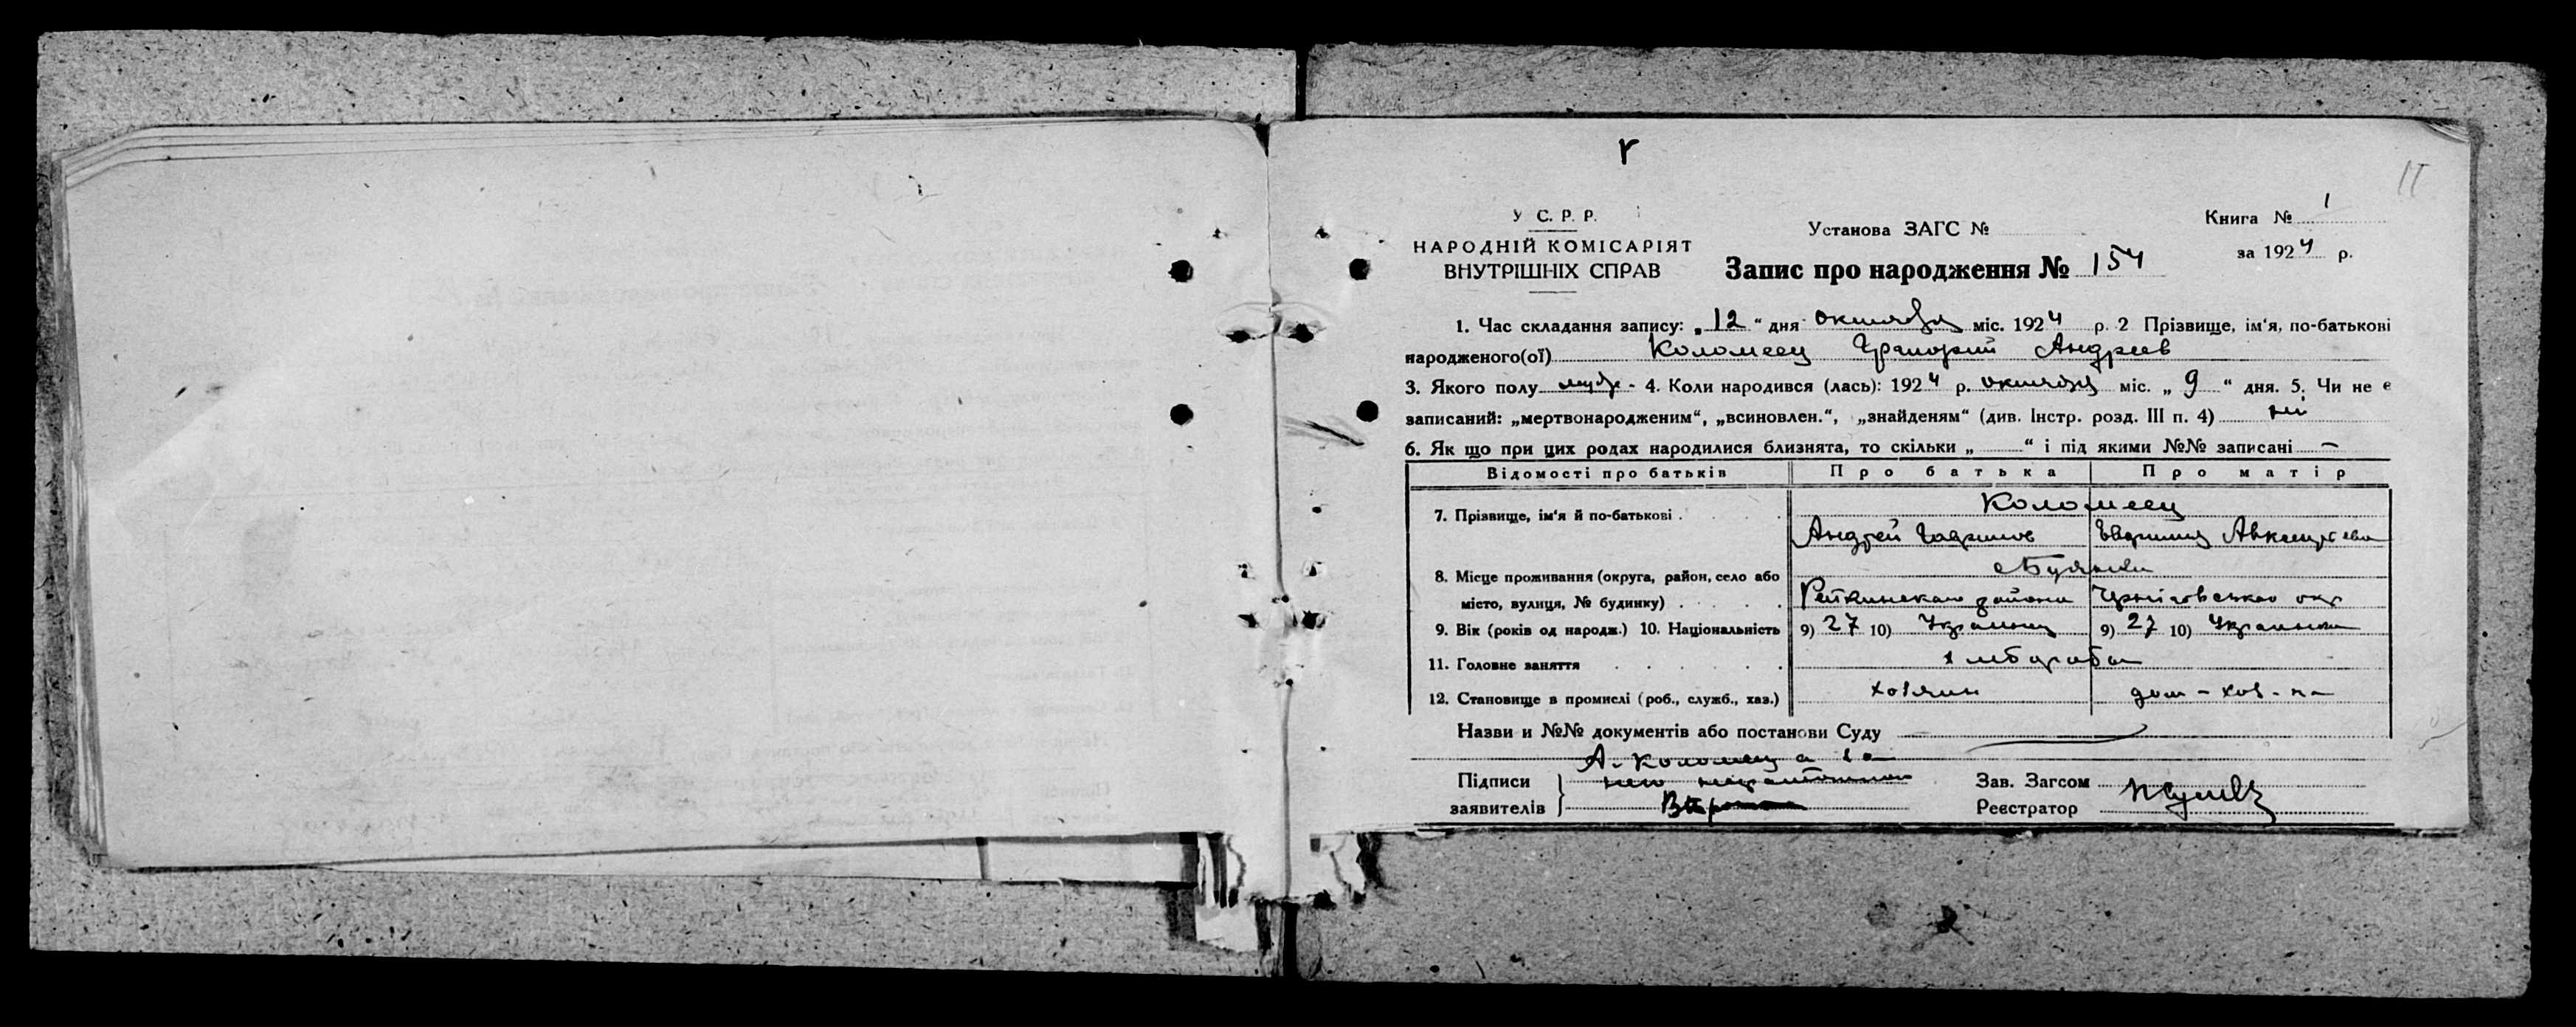 У С. Р. Р.
НАРОДНІЙ КОМІСАРІЯТ
ВНУТРІШНІХ СПРАВ
Установа ЗАГС №
Запис про народження № 154
Книга № 1
за 1924 р.
1. Час складання запису: „12“ дня октября міс. 1924 р. 2 Прізвище, ім‘я, по-батькові
народженого(ої) Коломеец Григорий Андреев
3. Якого полу муж - 4. Коли народився (лась): 1924 р. октября міс. „9“ дня. 5. Чи не є
записаний: „мертвонародженим“, „всиновлен.“, „знайденям“ (див. Інстр. розд. III п. 4)
6. Як що при цих родах народилися близнята, то скільки „ “ і під якими №№ записані —
Відомості про батьків Про батька Про матір
7. Прізвище, ім‘я й по-батькові . Коломеец
Андрей Гаврилов
8. Місце проживання (округа, район, село або
місто, вулиця, № будинку) . района Черніговського окр
9. Вік (років од народж.) 10. Національність 9) 27 10) Украинец 9) 27 10) Украинка
11. Головне заняття хлебороба
12. Становище в промислі (роб., служб., хаз.) хозяин дом-хоз-ка
Назви и №№ документів або постанови Суду
А. Коломеец а за
Підписи него неграмотного
заявителів
Зав. Загсом
Реєстратор